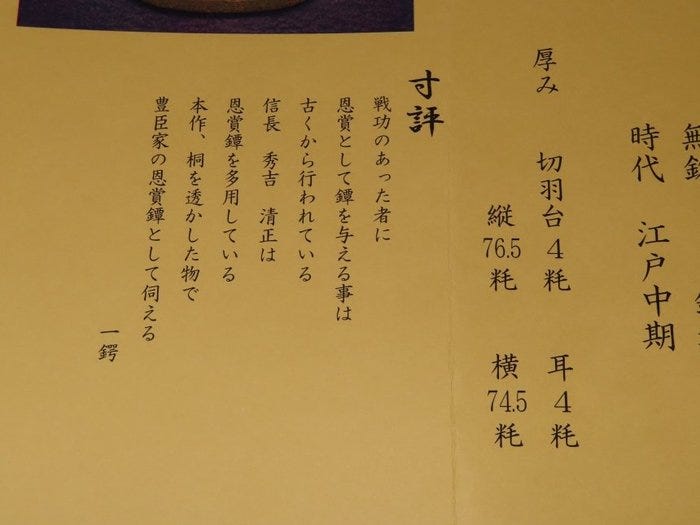 無銘
時代 江戸中期
厚み 切羽台4粍 耳4粍
縦76.5粍 横74.5粍
寸評
戦功のあった者に
恩賞として鐔を与える事は
古くから行われている
信長 秀吉 清正は
恩賞鐔を多用している
本作、桐を透かした物で
豊臣家の恩賞鐔として伺える
一鍔